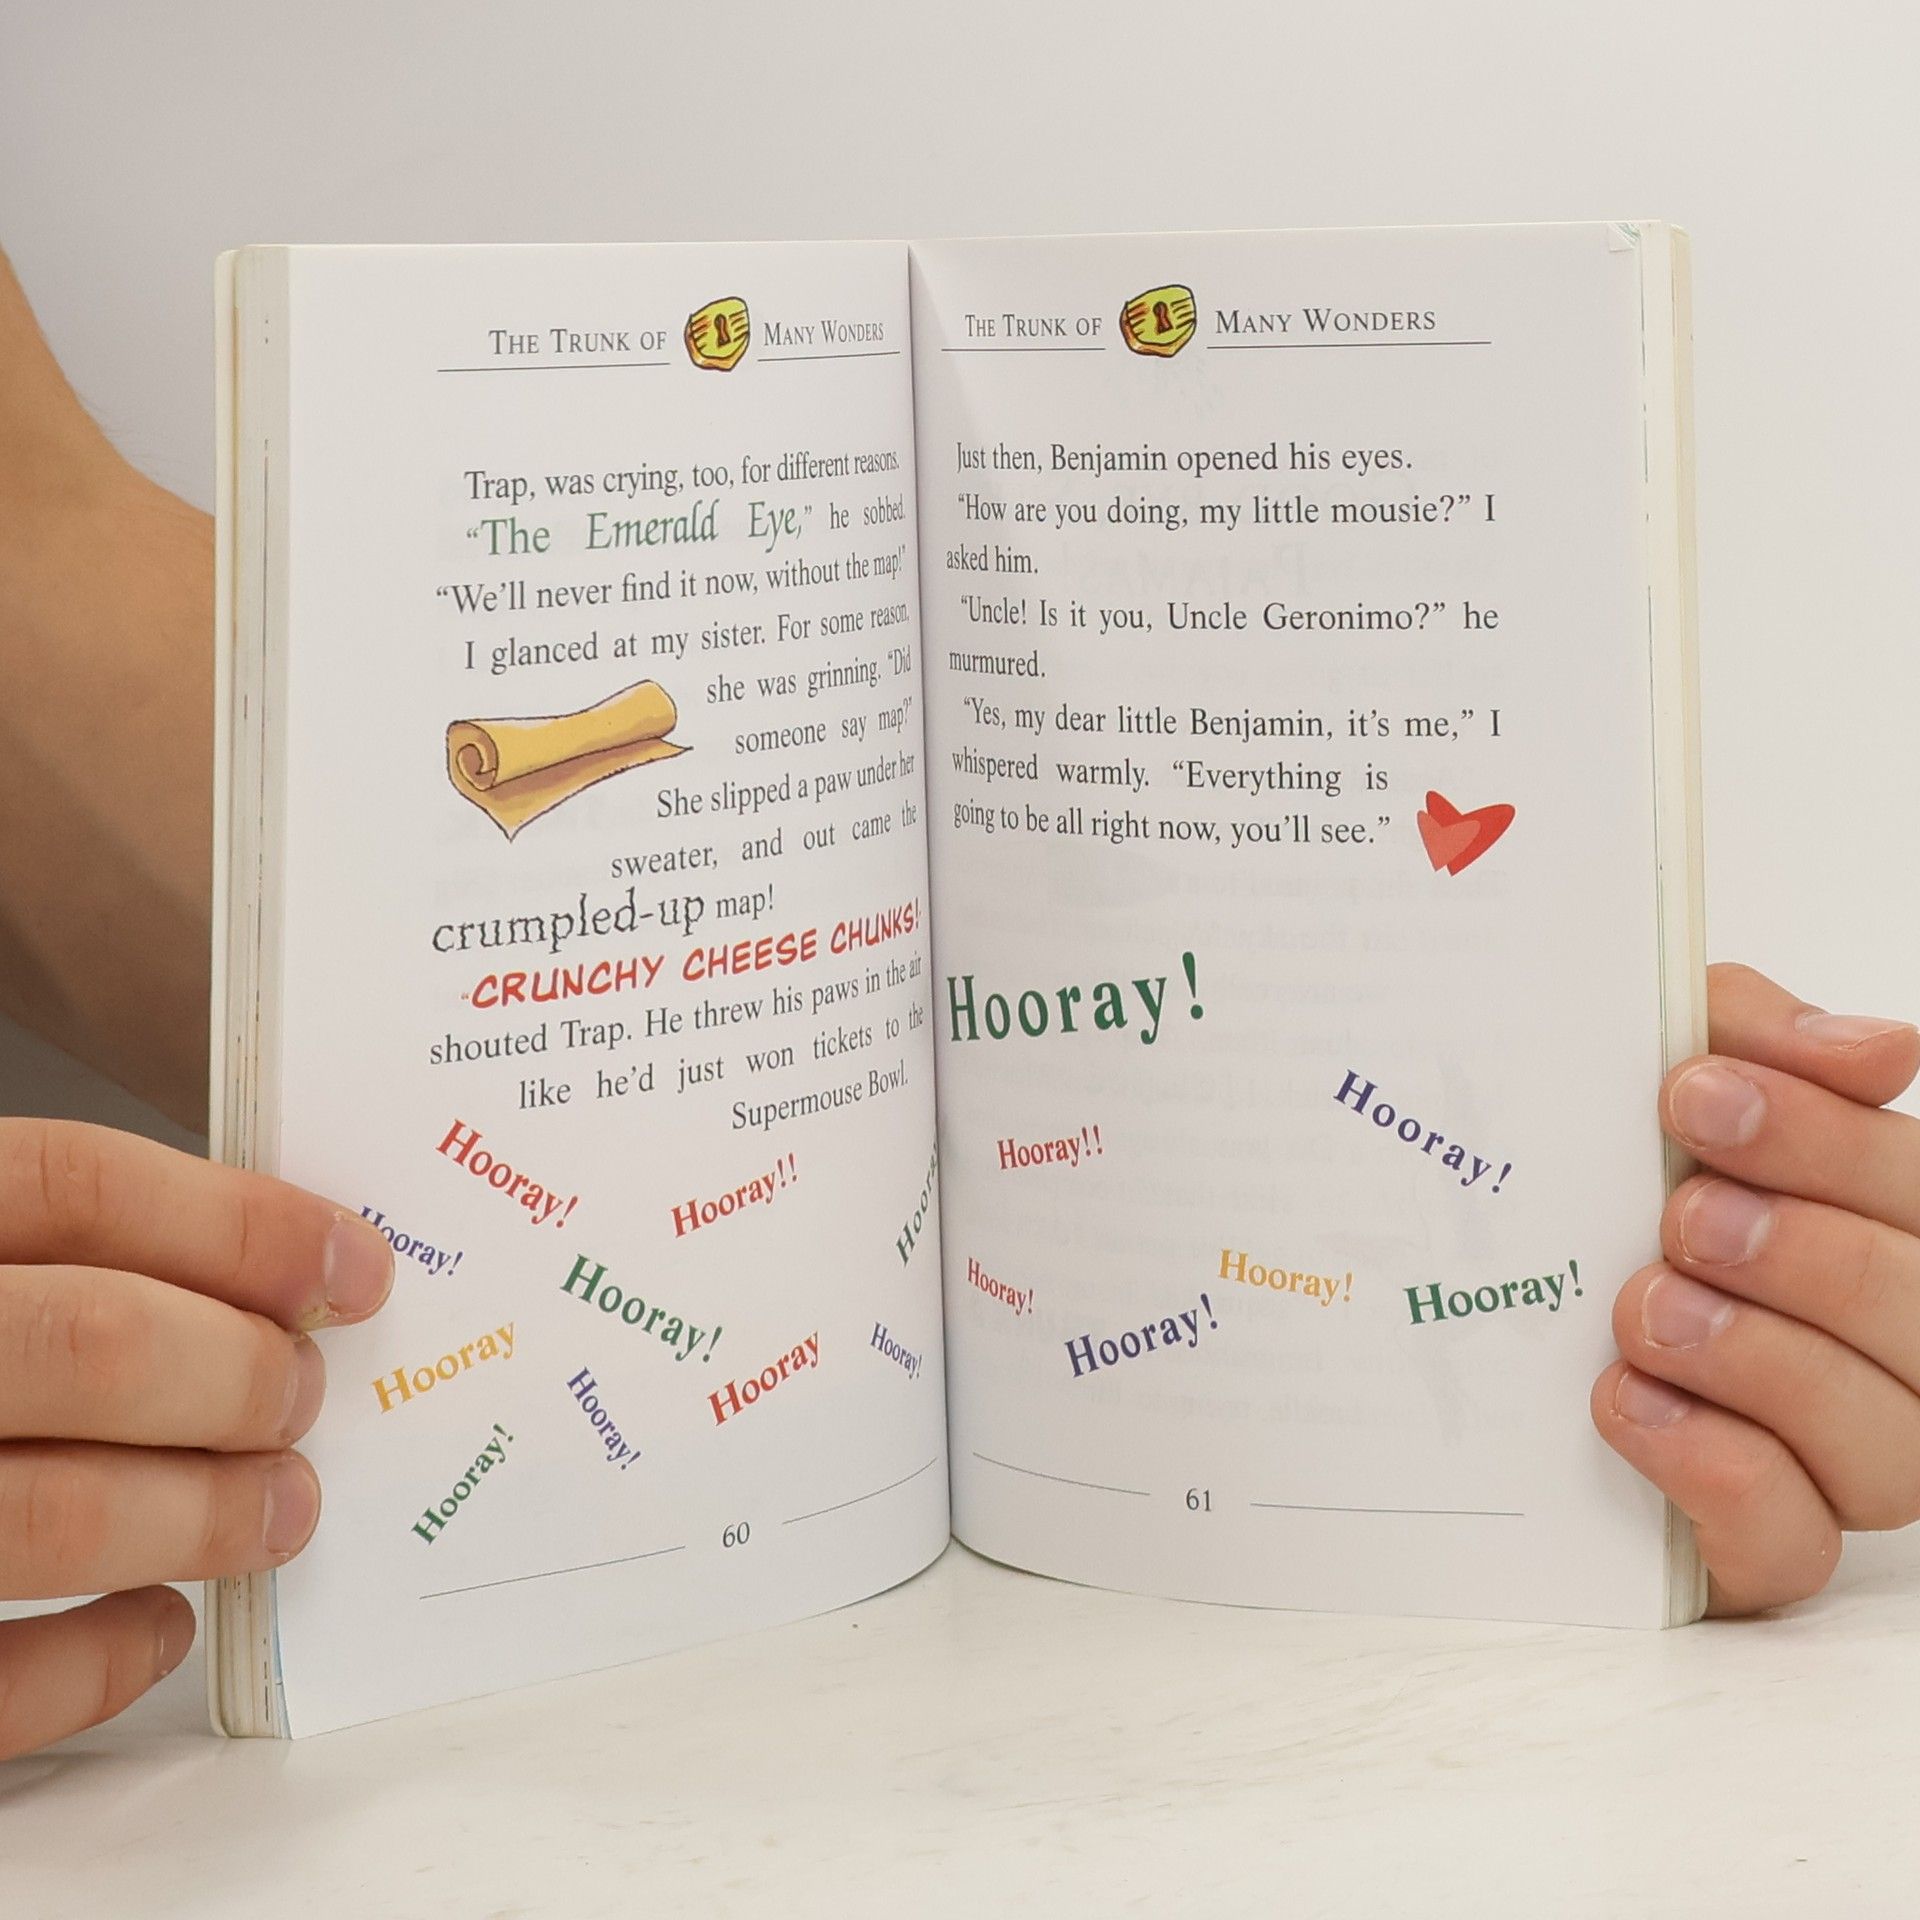 THE TRUNK OF MANY WONDERS
Trap, was crying, too, for different reasons.
“The Emerald Eye,” he sobbed.
“We’ll never find it now, without the map!”
I glanced at my sister. For some reason,
she was grinning. “Did
someone say map?”
She slipped a paw under her
sweater, and out came the
crumpled-up map!
“CRUNCHY CHEESE CHUNKS!”
shouted Trap. He threw his paws in the air
like he’d just won tickets to the
Supermouse Bowl.
Hooray!
Hooray!!
Hooray!
Hooray!
Hooray!
Hooray
Hooray!
Hooray
Hooray!
Hooray!
60
THE TRUNK OF MANY WONDERS
Just then, Benjamin opened his eyes.
“How are you doing, my little mousie?” I
asked him.
“Uncle! Is it you, Uncle Geronimo?” he
murmured.
“Yes, my dear little Benjamin, it’s me,” I
whispered warmly. “Everything is
going to be all right now, you’ll see.”
Hooray!
Hooray!
Hooray!!
Hooray!
Hooray!
Hooray!
Hooray!
61